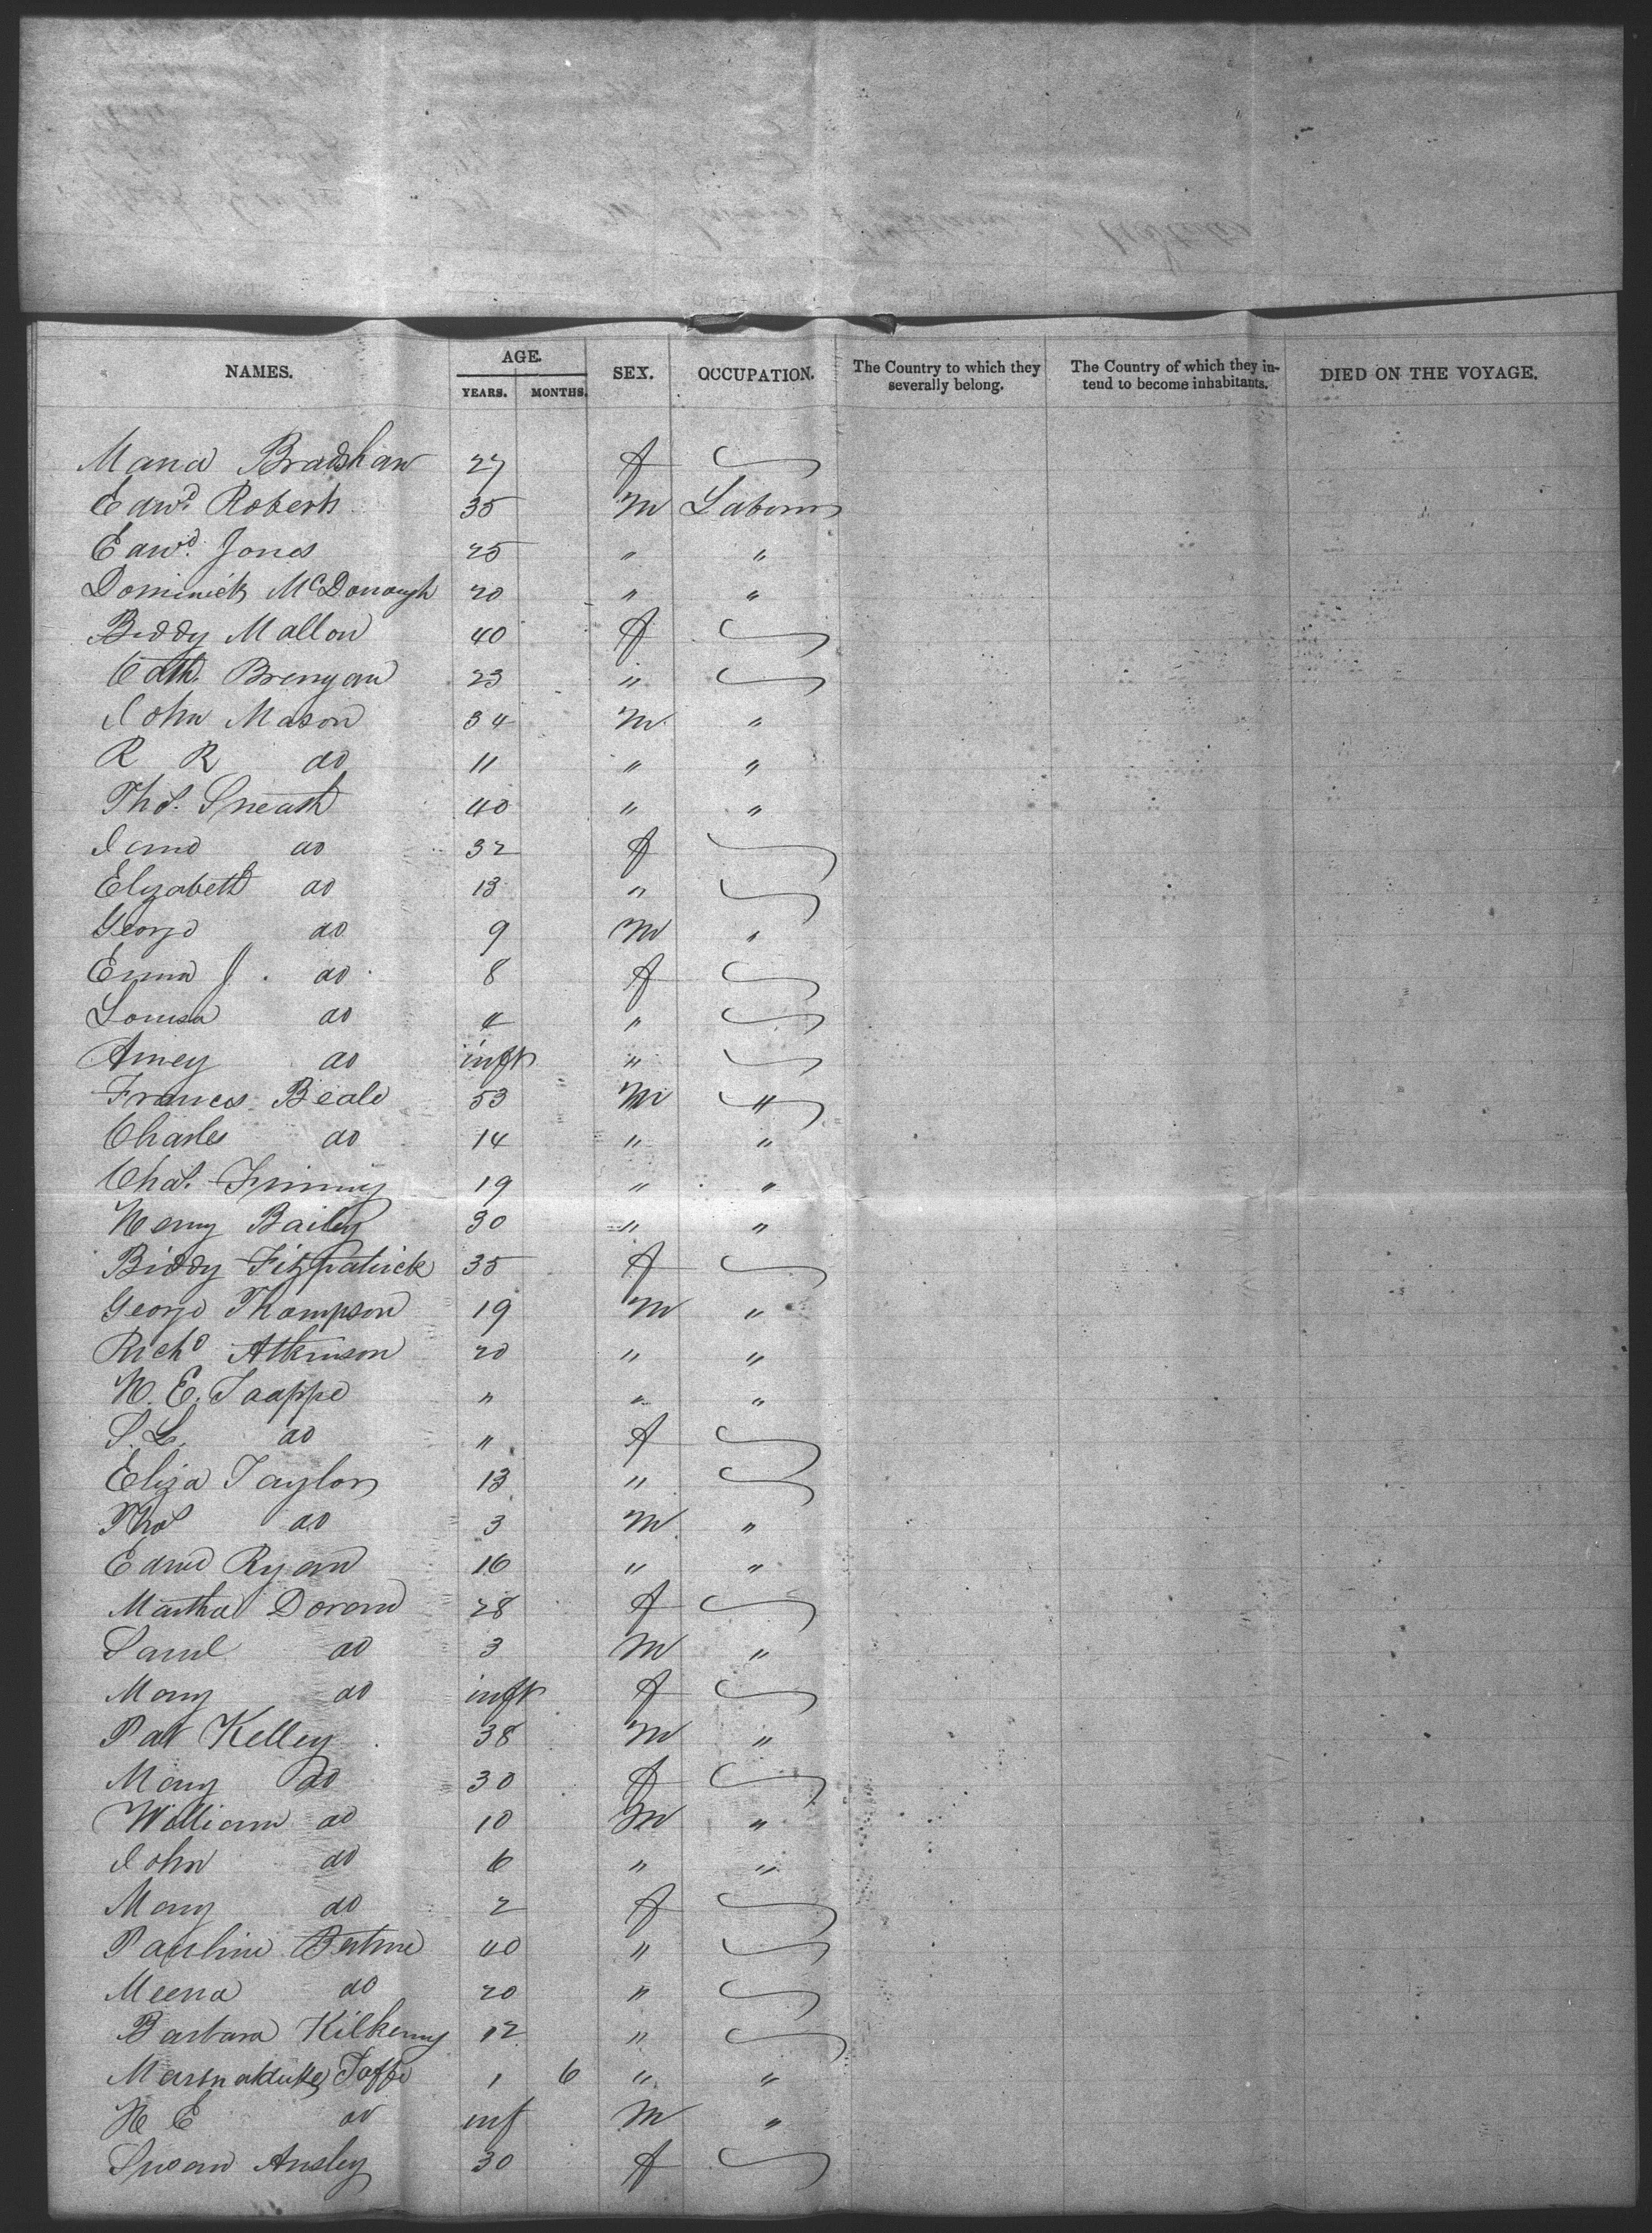 NAMES. AGE. YEARS. MONTHS. SEX. OCCUPATION. The Country to which they severally belong. The Country of which they intend to become inhabitants. DIED ON THE VOYAGE.
Maria Bradshaw 27 f
Edwd. Roberts 35 M Laborer
Edwd. Jones 25 " "
Dominick McDonough 20 " "
Biddy Mallon 40 f
Cath. Brenyan 23 "
John Mason 34 M "
R R do 11 " "
Thos. Sneath 40 " "
Jane do 32 f
Elizabeth do 13 "
George do 9 M "
Emma J. do 8 f
Louisa do 4 "
Amey do inft "
Frances Beale 53 M "
Charles do 14 " "
Chas. 19 " "
Henry Bailey 30 " "
Biddy Fitzpatrick 35 f
George Thompson 19 M "
Richd Atkinson 20 " "
H. E. " " "
S. L. do " f
Eliza Taylor 13 "
Thos do 3 M "
Edwd Ryan 16 " "
Martha Doran 28 f
Saml do 3 M "
Mary do inft f
Pat Kelley 38 M "
Mary do 30 f
William do 10 M "
John do 6 " "
Mary do 2 f
Pauline 40 "
Meena do 20 "
Barbara Kilkenny 12 "
Marmaduke 1 6 " "
H E do inf M "
Susan Ansley 30 f